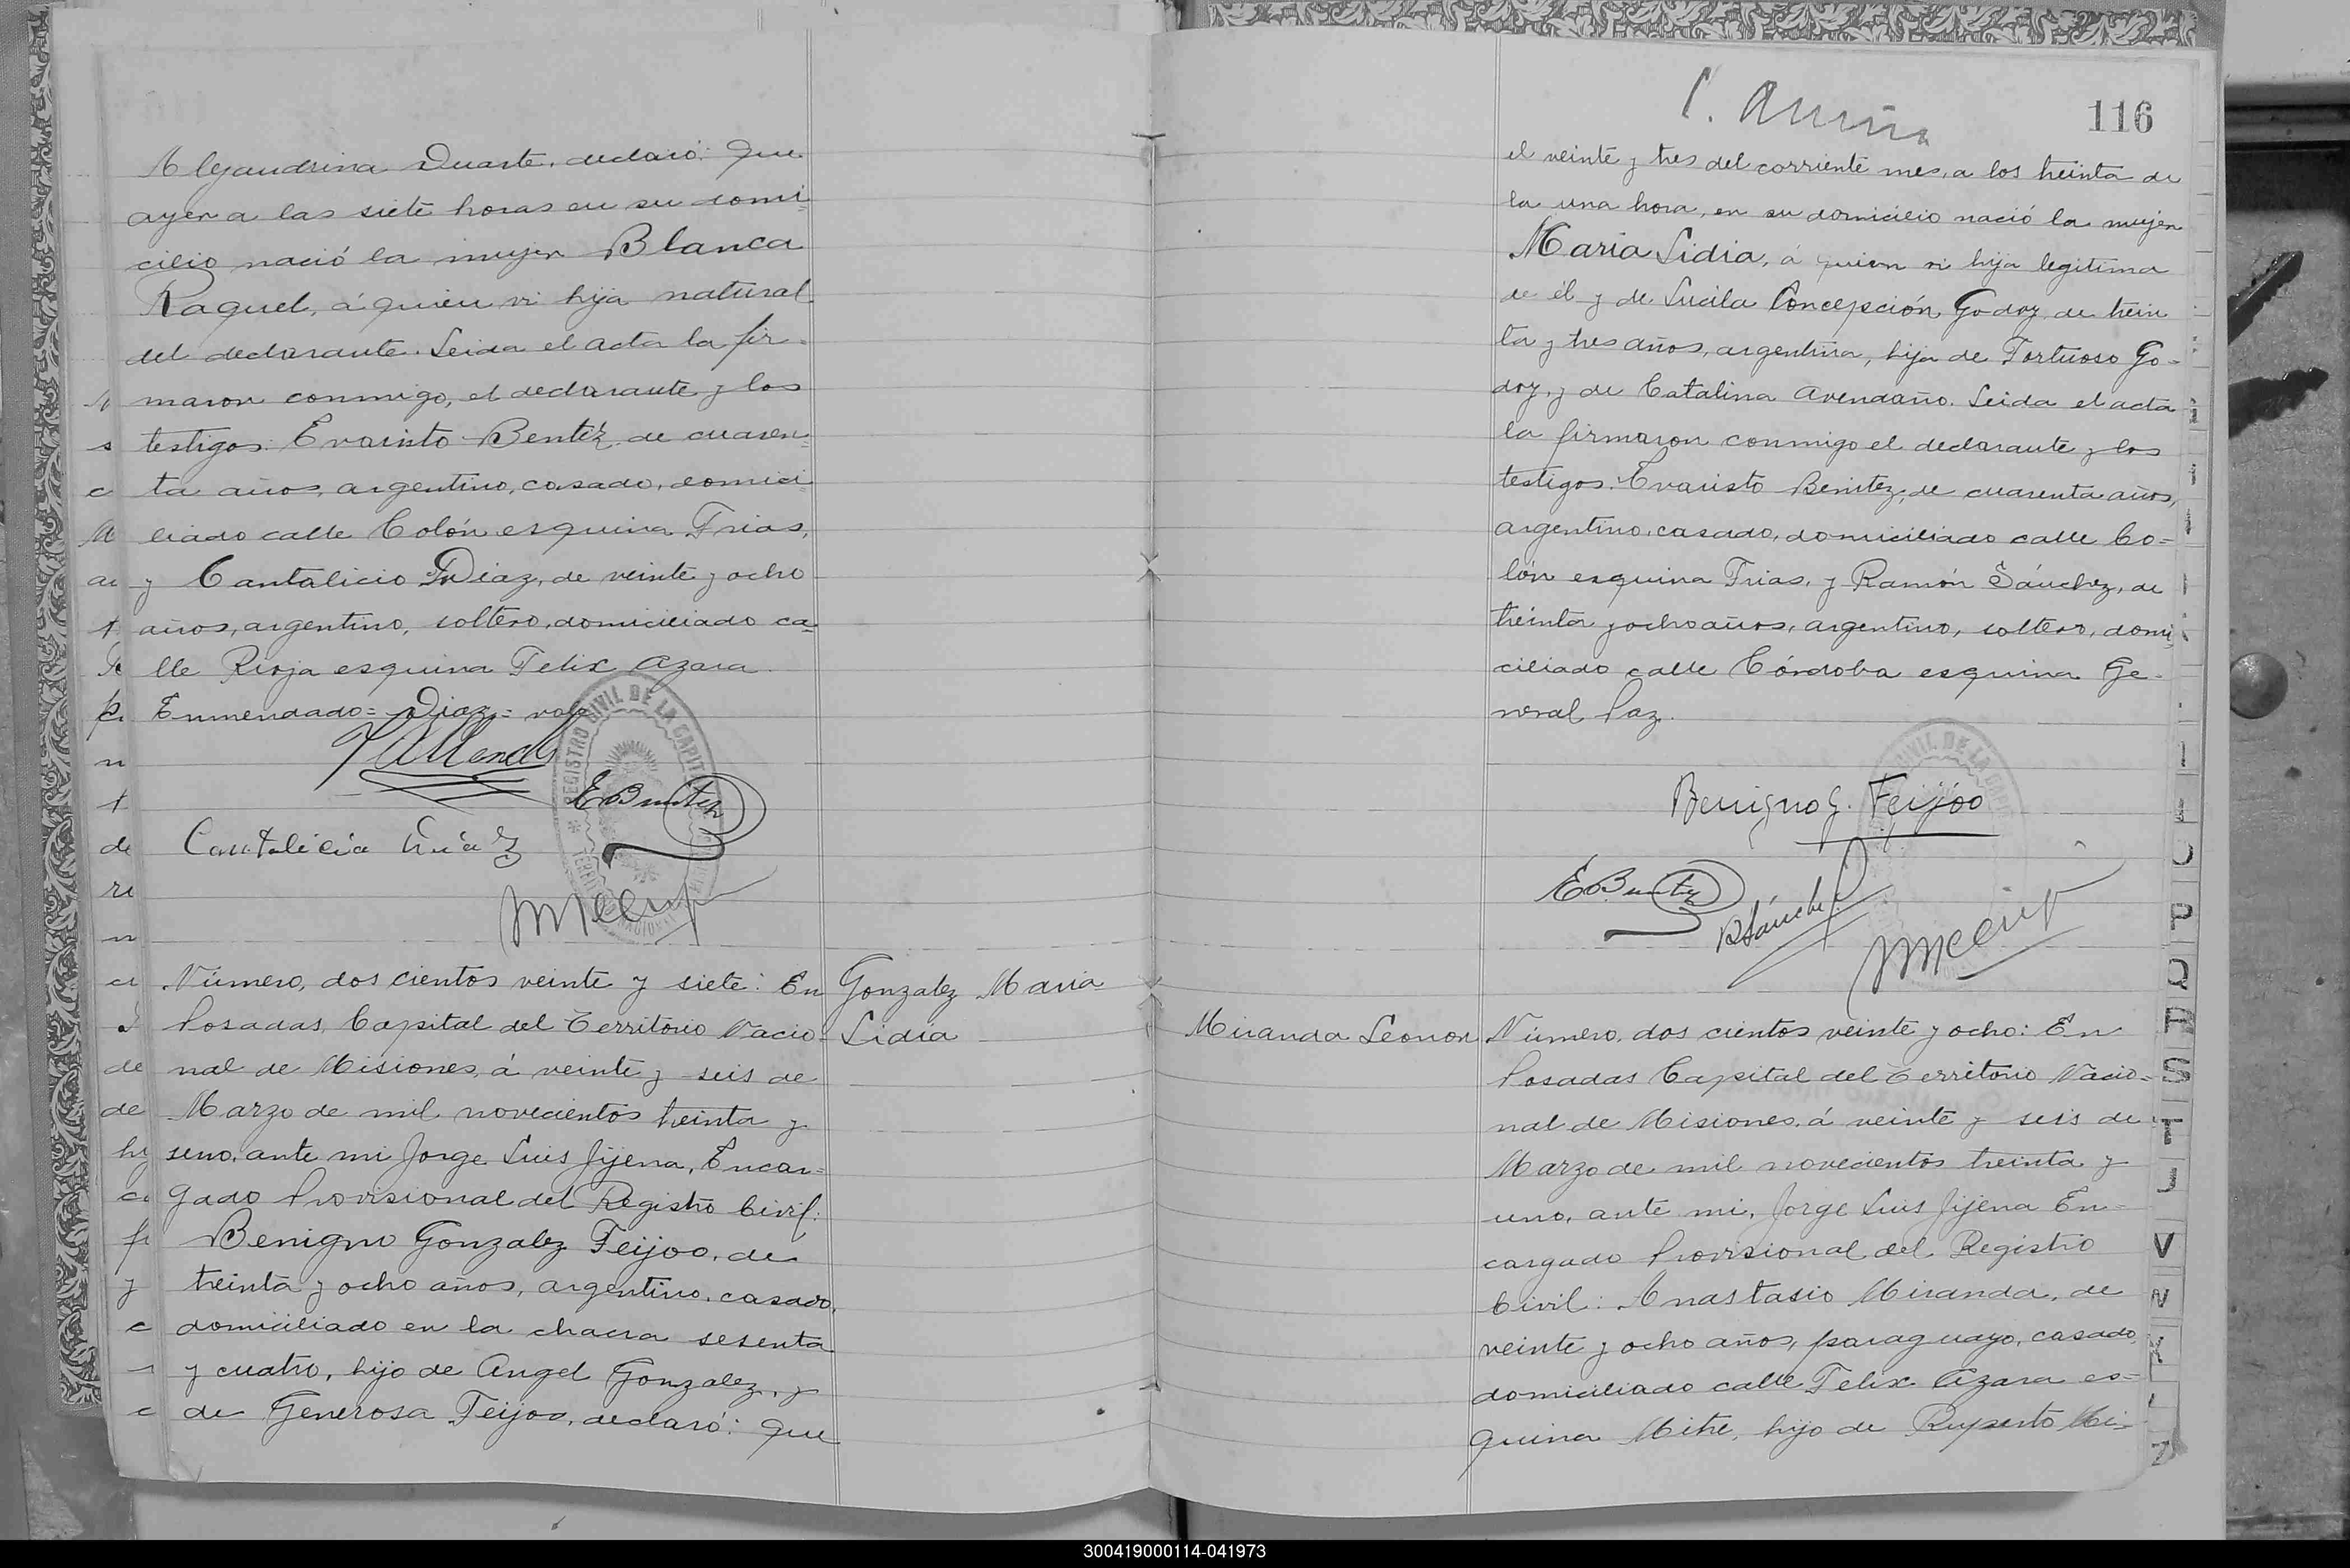 Alejandrina Duarte, declaró: Que
ayer a las siete horas en su domi=
cilio nació la mujer Blanca
Raquel, á quien vi hija natural
del declarante. Leida el acta la fir=
maron conmigo, el declarante y los
testigos: Evaristo Bentéz, de cuaren=
ta años, argentino, casado, domici=
liado calle Colón esquina Frias,
y Cantalicio Diaz, de veinte y ocho
años, argentino, soltero, domiciliado ca=
lle Rioja esquina Felix Azara.
Enmendado= Diaz= vale
REGISTRO CIVIL DE LA CAPITAL
E Benitez
Cantalicio Diaz
Número, dos cientos veinte y siete: En
Posadas, Capital del Territorio Nacio=
nal de Misiones, á veinte y seis de
Marzo de mil novecientos treinta y
uno, ante mi Jorge Luis Jijena, Encar=
gado Provisional del Registro Civil:
Benigno Gonzalez Feijoo, de
treinta y ocho años, argentino, casado,
domiciliado en la chacra sesenta
y cuatro, hijo de Angel Gonzalez, y
de Generosa Feijoo, declaró: Que
Gonzalez Maria
Lidia
116
el veinte y tres del corriente mes, a los treinta de
la una hora, en su domicilio nació la mujer
Maria Lidia, á quien vi hija legitima
de él y de Lucila Concepción Godoy, de trein
ta y tres años, argentina, hija de Fortuoso Go=
doy, y de Catalina Avendaño. Leida el acta
la firmaron conmigo el declarante y los
testigos: Evaristo Benitez, de cuarenta años,
argentino, casado, domiciliado calle Co=
lón esquina Frias, y Ramón Sánchez, de
treinta y ocho años, argentino, soltero, domi=
ciliado calle Córdoba esquina Ge=
neral Paz.
Benigno G. Feijóo
E Benitez
R Sánchez
Miranda Leonor
Número, dos cientos veinte y ocho: En
Posadas Capital del Territorio Nacio=
nal de Misiones, á veinte y seis de
Marzo de mil novecientos treinta y
uno, ante mi, Jorge Luis Jijena En=
cargado Provisional del Registro
Civil: Anastasio Miranda, de
veinte y ocho años, paraguayo, casado,
domiciliado calle Felix Azara es=
quina Mitre, hijo de Ruperto Mi=
O
P
Q
R
S
T
V
Z
300419000114-041973